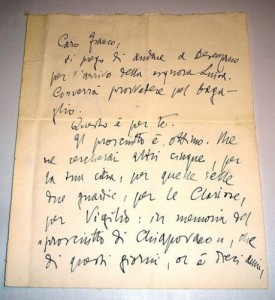 Caro Franco,
ti prego di andare a Desenzano
per l'arrivo della signora Luisa.
Converrà provvedere pel baga-
glio.
Questo è per te.
Il prosciutto è ottimo. Me
ne cercherai altri cinque, per
la tua casa, per quelle delle
due guardie, per le Clarisse,
per Vigilio: in memoria del
"prosciutto di Chiapovano", che
di questi giorni, or è dieci anni,